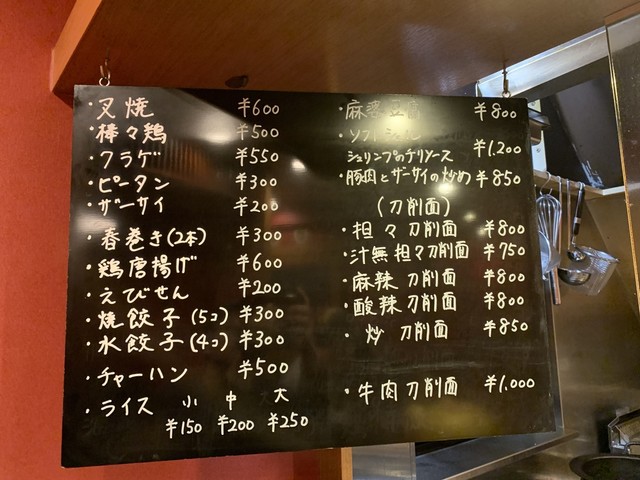 ・叉焼 ¥600
・棒々鶏 ¥500
・クラゲ ¥550
・ピータン ¥300
・ザーサイ ¥200
・春巻き(2本) ¥300
・鶏唐揚げ ¥600
・えびせん ¥200
・焼餃子(5コ) ¥300
・水餃子(4コ) ¥300
・チャーハン ¥500
・ライス 小 中 大
¥150 ¥200 ¥250
・麻婆豆腐 ¥800
・ソフトシェル
シュリンプのチリソース ¥1,200
・豚肉とザーサイの炒め ¥850
(刀削面)
・担々刀削面 ¥800
・汁無担々刀削面 ¥750
・麻辣刀削面 ¥800
・酸辣刀削面 ¥800
・炒刀削面 ¥850
・牛肉刀削面 ¥1,000